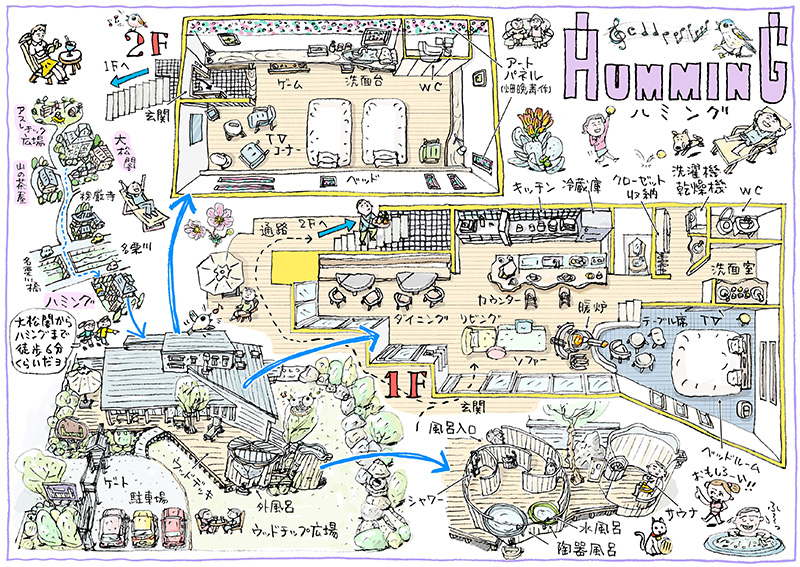 HUMMING
ハミング
2F
1Fへ
玄関
ゲーム
洗面台
WC
アート
パネル
TV
コーナー
ベッド
アスレチック広場
大松閣
山の茶屋
名栗川
名栗川橋
ハミング
大松閣から
ハミングまで
徒歩6分
くらいだヨ
通路
2Fへ
キッチン
冷蔵庫
クローゼット
収納
洗濯機
乾燥機
WC
洗面室
カウンター
暖炉
ダイニング
リビング
ソファー
テーブル席
TV
ベッドルーム
1F
玄関
ゲート
駐車場
ウッドデッキ
外風呂
ウッドチップ広場
風呂入口
シャワー
水風呂
陶器風呂
サウナ
おもしろーい!!